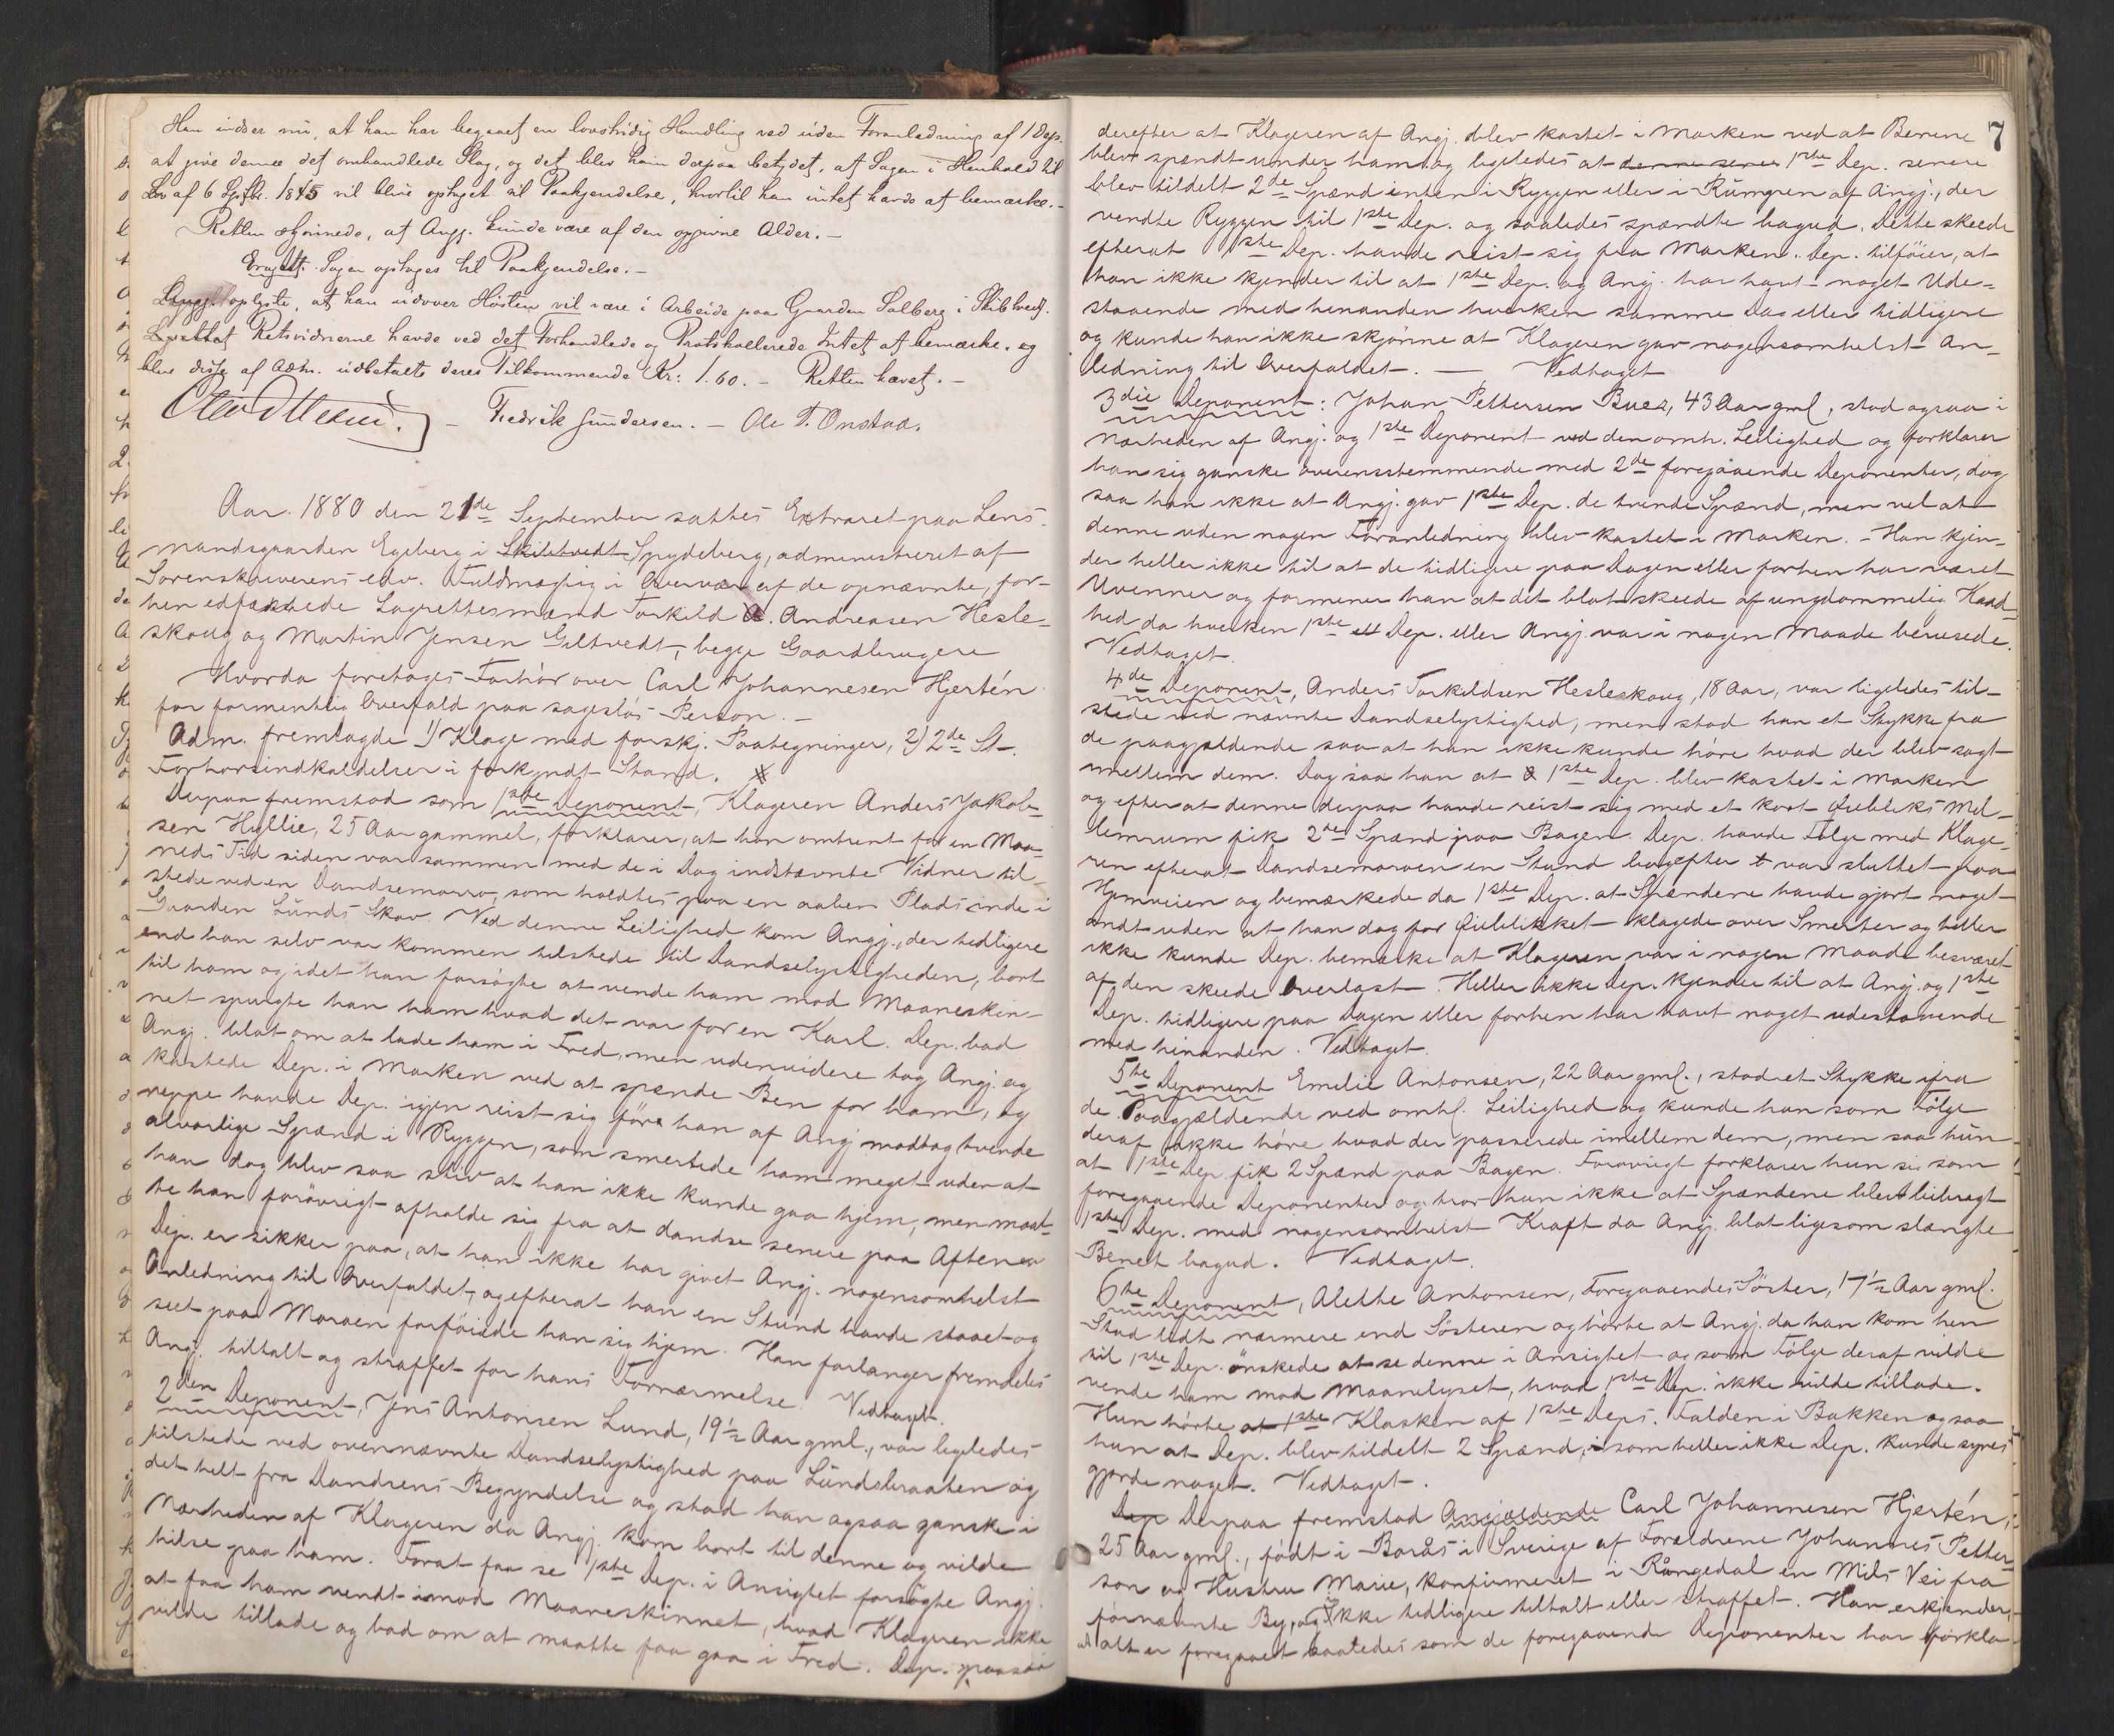 Han indser nu, at han har begaaet en lovstridig Handling ved uden Foranledning af 1 Dep.
at give denne det omhandlede Slag, og det blev ham derpaa betydet, at Sagen i Henhold til
Lov af 6 Septbr. 1845 vil blive optaget til Paakjendelse, hvortil han intet havde at bemærke.-
Retten skjønnede, at Angj. kunde være af den opgivne Alder.-
Eragtet. Sagen optages til Paakjendelse.-
oplyste, at han udover Høsten vil være i Arbeide paa Gaarden Solberg i Skibtvedt.
Retsvidnerne havde ved det Forhandlede og Protokollerede Intet at bemærke. og
blev disse af Adm. udbetalt deres Tilkommende Kr: 1.60.- Retten hævet.-
Fredrik Gundersen. - Ole T. Onstad.
Aar. 1880 den 21de September sattes Extraret paa Lens-
mandsgaarden Egeberg i Skibtvedt Spydeberg, administreret af
Sorenskriverens edv. Fuldmægtig i Overvær af de opnævnte, for-
hen edfæstede Lagrettesmænd Torkild A. Andreasen Hesle-
skoug og Martin Jensen Giltvedt, begge Gaardbrugere
Hvorda foretages Forhør over Carl Johannesen Hjertén
for formentlig Overfald paa sagesløs Person.-
Adm. fremlagde 1) Klage med forskj. Paategninger, 2) 2de St.
Forhørsindkaldelser i forkyndt Stand.
Derpaa fremstod som 1ste Deponent, Klageren Anders Jakob-
sen Hyllie, 25 Aar gammel, forklarer, at han omtrent for en Maa-
neds Tid siden var sammen med de i Dag indstævnte Vidner til-
stede ved en Dandsemoro, som holdtes paa en aaben Plads inde i
Gaarden Lunds Skov. Ved denne Leilighed kom Angj., der tidligere
end han selv var kommen tilstede til Dandselystigheden, bort
til ham og idet han forsøgte at vende ham mod Maaneskin-
net spurgte han ham hvad det var for en Karl. Dep. bad
Angj. blot om at lade ham i Fred, men udenvidere tog Angj. og
kastede Dep. i Marken ved at spænde Ben for ham, og
neppe havde Dep. igjen reist sig före han af Angj modtog tvende
alvorlige Spænd i Ryggen, som smertede ham meget uden at
han dog blev saa stiv at han ikke kunde gaa hjem, men maat-
te han forövrigt afholde sig fra at dandse senere paa Aftenen
Dep. er sikker paa, at han ikke har givet Angj. nogensomhelst
Anledning til Overfaldet, og efterat han en Stund havde staaet og
seet paa Moroen forföiede han sig hjem. Han forlanger fremdeles
Angj. tiltalt og straffet for hans Fornærmelse. Vedtaget.
2den Deponent, Jens Antonsen Lund, 19½ Aar gml., var ligeledes
tilstede ved ovennævnte Dandselystighed paa Lundsbraaten og
det helt fra Dandsens Begyndelse og stod han ogsaa ganske i
Nærheden af Klageren da Angj. kom bort til denne og vilde
hilse paa ham. Forat faa se 1ste Dep. i Ansigtet forsögte Angj.
at faa ham vendt imod Maaneskinnet, hvad Klageren ikke
vilde tillade og bad om at maatte faa gaa i Fred. Dep. paasaa
7
derefter at Klageren af Angj. blev kastet i Marken ved at Benene
blev spændt under ham og ligeledes at denne senere 1ste Dep. senere
blev tildelt 2de Spænd enten i Ryggen eller i Rumpen af Angj., der
vendte Ryggen til 1ste Dep. og saaledes spændte bagud. Dette skeede
efterat 1ste Dep. havde reist sig fra Marken. Dep. tilföier, at
han ikke kjender til at 1ste Dep. og Angj. har havt noget Ude-
staaende med hinanden hverken samme Dag eller tidligere
og kunde han ikke skjönne at Klageren gav nogensomhelst An-
ledning til Overfaldet. — Vedtaget
3die Deponent: Johan Pettersen Buer, 43 Aar gml, stod ogsaa i
Nærheden af Angj. og 1ste Deponent ved den omh. Leilighed og forklarer
han sig ganske overensstemmende med 2de foregaaende Deponenter, dog
saa han ikke at Angj. gav 1ste Dep. de tvende Spænd, men vel at
denne uden nogen Foranledning blev kastet i Marken. - Han kjen-
der heller ikke til at de tidligere paa Dagen eller forhen har været
Uvenner og formener han at det blot skeede af ungdommelig Kaad-
hed da hverken 1ste Dep. eller Angj. var i nogen Maade berusede.
Vedtaget.
4de Deponent, Anders Torkildsen Hesleskoug, 18 Aar, var ligeledes til-
stede ved nævnte Dandselystighed, men stod han et Stykke fra
de paagjældende saa at han ikke kunde höre hvad der blev sagt
mellem dem. Dog saa han at 1ste Dep. blev kastet i Marken
og efterat denne derpaa havde reist sig med et kort Øiebliks Mel-
lemrum fik 2de Spænd paa Bagen. Dep. havde Følge med Klage-
ren efterat Dandsemoroen en Stund bagefter var sluttet paa
Hjemveien og bemærkede da 1ste Dep. at Spændene havde gjort noget
ondt uden at han dog for Øieblikket klagede over Smerter og heller
ikke kunde Dep. bemærke at Klageren var i nogen Maade besværet
af den skeede Overlast. Heller ikke Dep. kjender til at Angj. og 1ste
Dep. tidligere paa Dagen eller forhen har havt noget udestaaende
med hinanden. Vedtaget.
5te Deponent Emilie Antonsen, 22 Aar gml., stod et Stykke ifra
de Paagjældende ved omhl. Leilighed og kunde hun som Følge
deraf ikke höre hvad der passerede imellem dem, men saa hun
at 1ste Dep. fik 2 Spænd paa Bagen. Forövrigt forklarer hun sig som
foregaaende Deponenter og tror hun ikke at Spændene blev bibragt
1ste Dep. med nogensomhelst Kraft da Angj. blot ligesom slængte
Benet bagud. Vedtaget.
6te Deponent, Alette Antonsen, Foregaaendes Söster, 17½ Aar gml.
Stod lidt nærmere end Sösteren og hörte at Angj. da han kom hen
til 1ste Dep. önskede at se denne i Ansigtet og som Følge deraf vilde
vende ham mod Maanelyset, hvad 1ste Dep. ikke vilde tillade.
Hun hörte at 1ste Klasken af 1ste Deps. Falden i Bakken og saa
hun at Dep. blev tildelt 2 Spænd, som heller ikke Dep. kunde synes
gjorde noget. Vedtaget.
Dep Derpaa fremstod Angjældende Carl Johannesen Hjertén,
25 Aar gml., födt i Borås i Sverige af Forældrene Johannes Petter-
son og Hustru Marie, konfirmeret i Rångedal en Mils Vei fra
förnævnte By, og ikke tidligere tiltalt eller straffet. Han erkjender,
at alt er foregaaet saaledes som de foregaaende Deponenter har forkla-